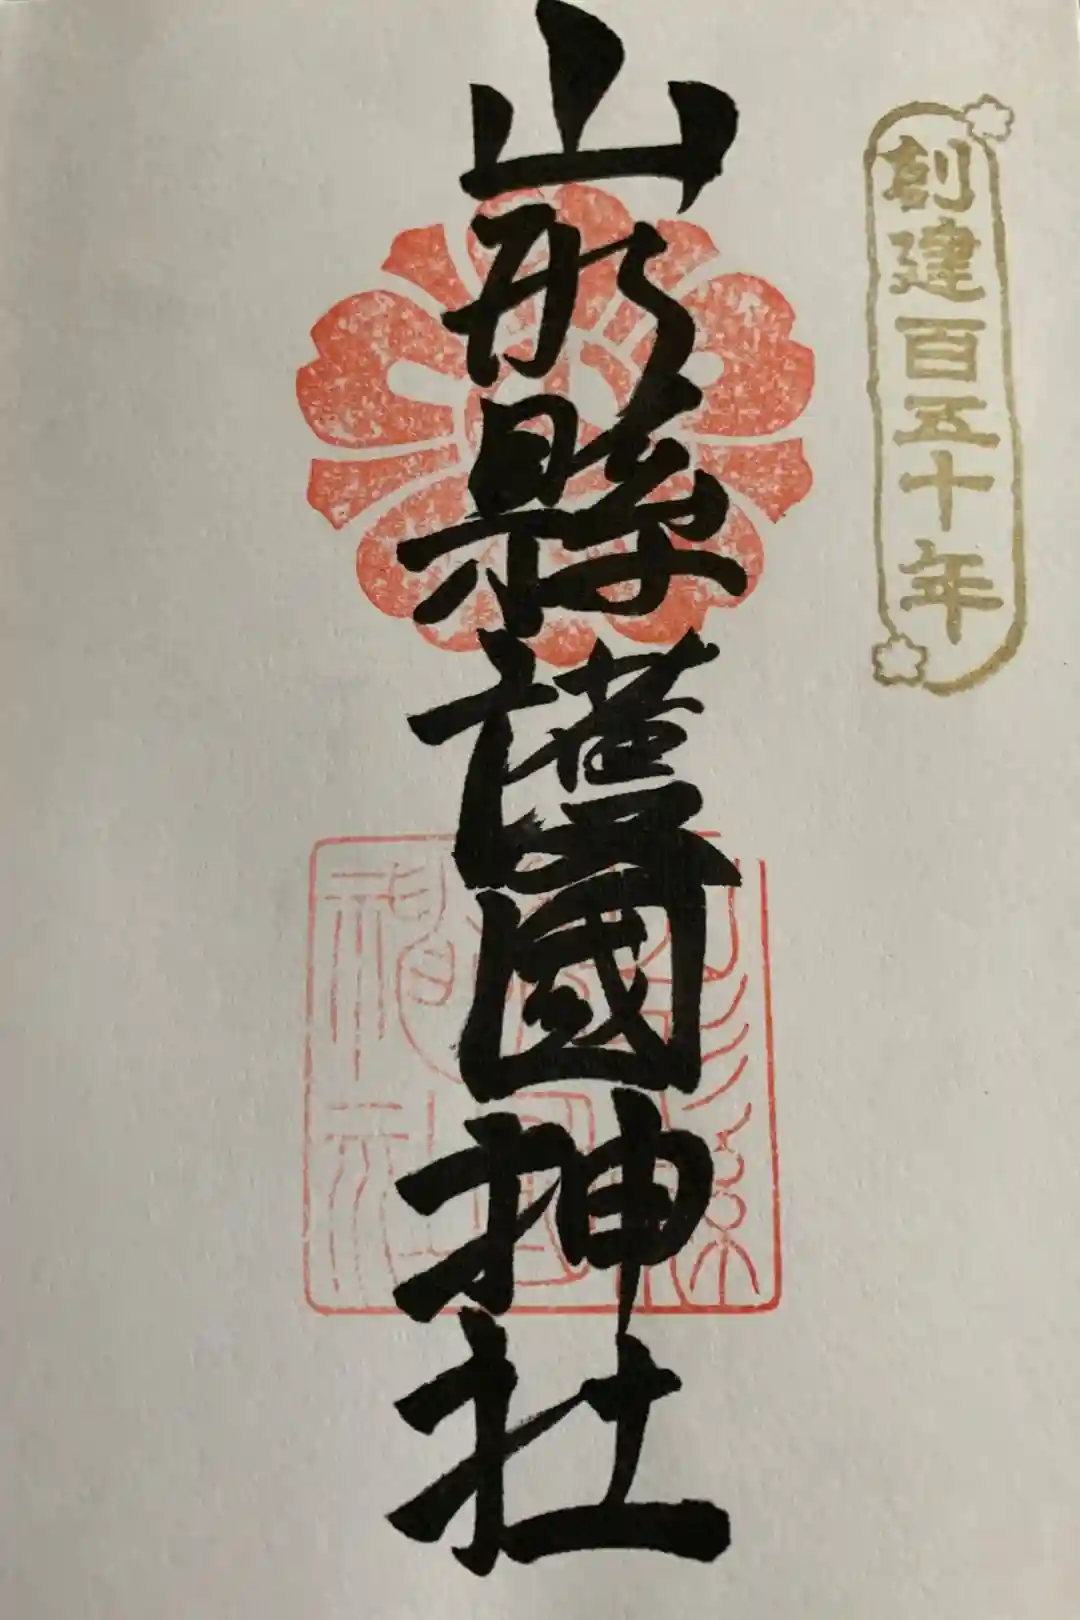 創建百五十年
山形縣護國神社